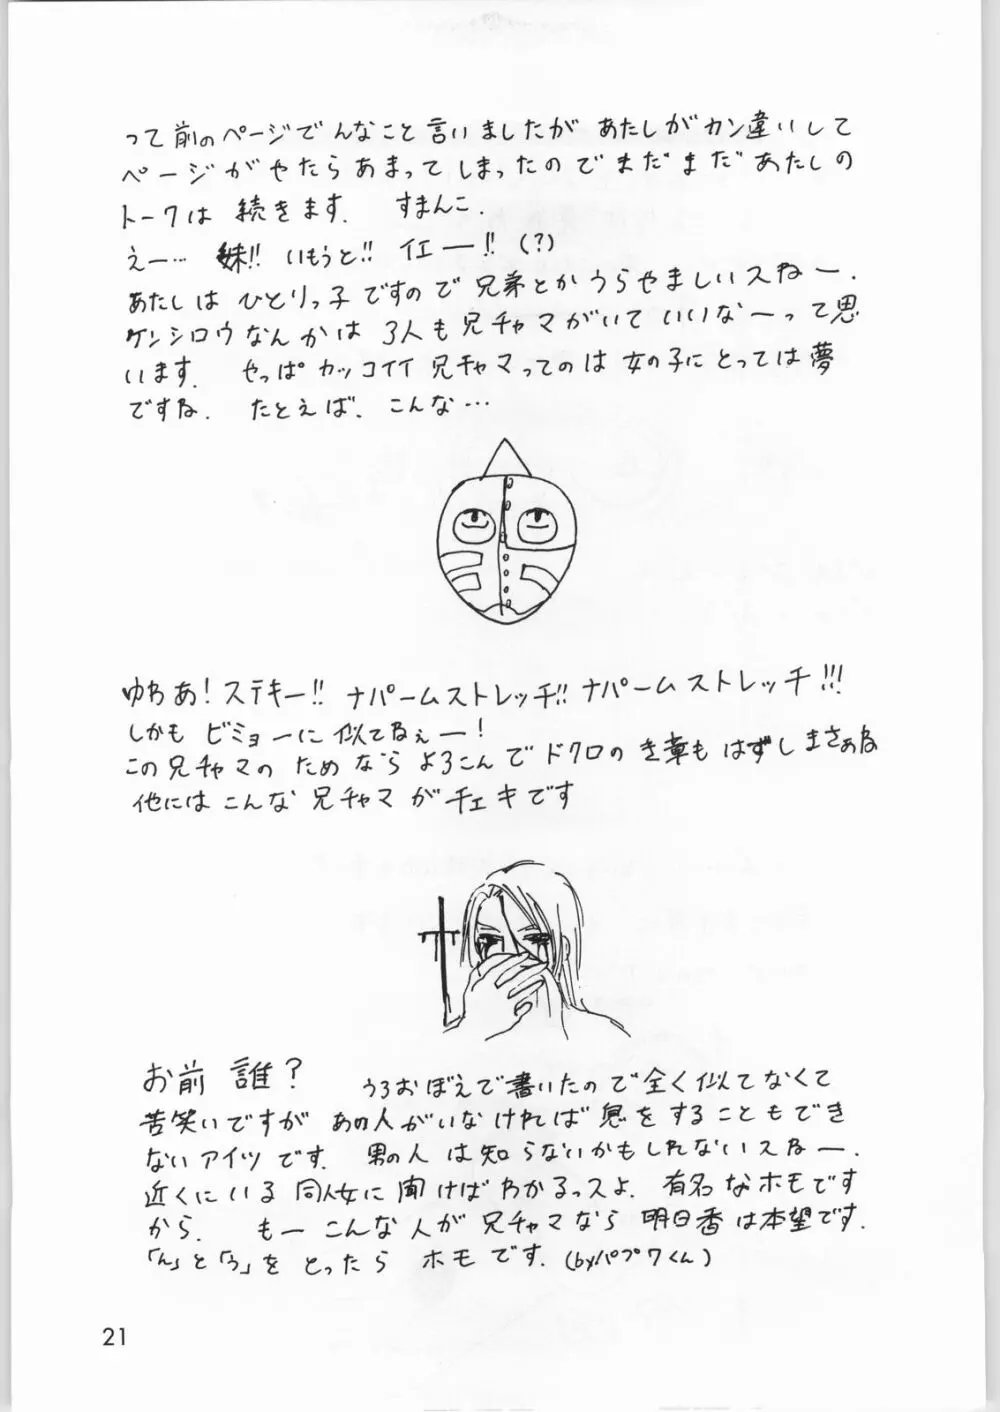 って前のページでんなこと言いましたが あたしがカン違いして
ページがやたらあまってしまったのでまだまだあたしの
トークは 続きます. すまんこ.
えー… 妹!! いもうと!! イエー!! (?)
あたしは ひとりっ子ですので兄弟とかうらやましいスねー.
ケンシロウなんかは 3人も兄チャマがいていいなーって思
います. やっぱカッコイイ兄チャマってのは 女の子にとっては夢
ですね. たとえば、こんな…
ゆちあ! ステキー!! ナパームストレッチ!! ナパームストレッチ!!!
しかも ビミョーに 似てねぇー!
この兄チャマの ためなら よろこんでドクロの き章も はずしまさぁね
他には こんな 兄チャマ がチェキです
お前 誰?
うろおぼえで書いたので全く似てなくて
苦笑いですが あの人がいなければ息をすることもでき
ないアイツです. 男の人は知らないかもしれないスねー.
近くにいる 同人女に聞けばわかるっスよ. 有名なホモです
から. もー こんな人が 兄チャマなら 明日香は本望です.
「ん」と「う」を とったら ホモです. (byパプワくん)
21